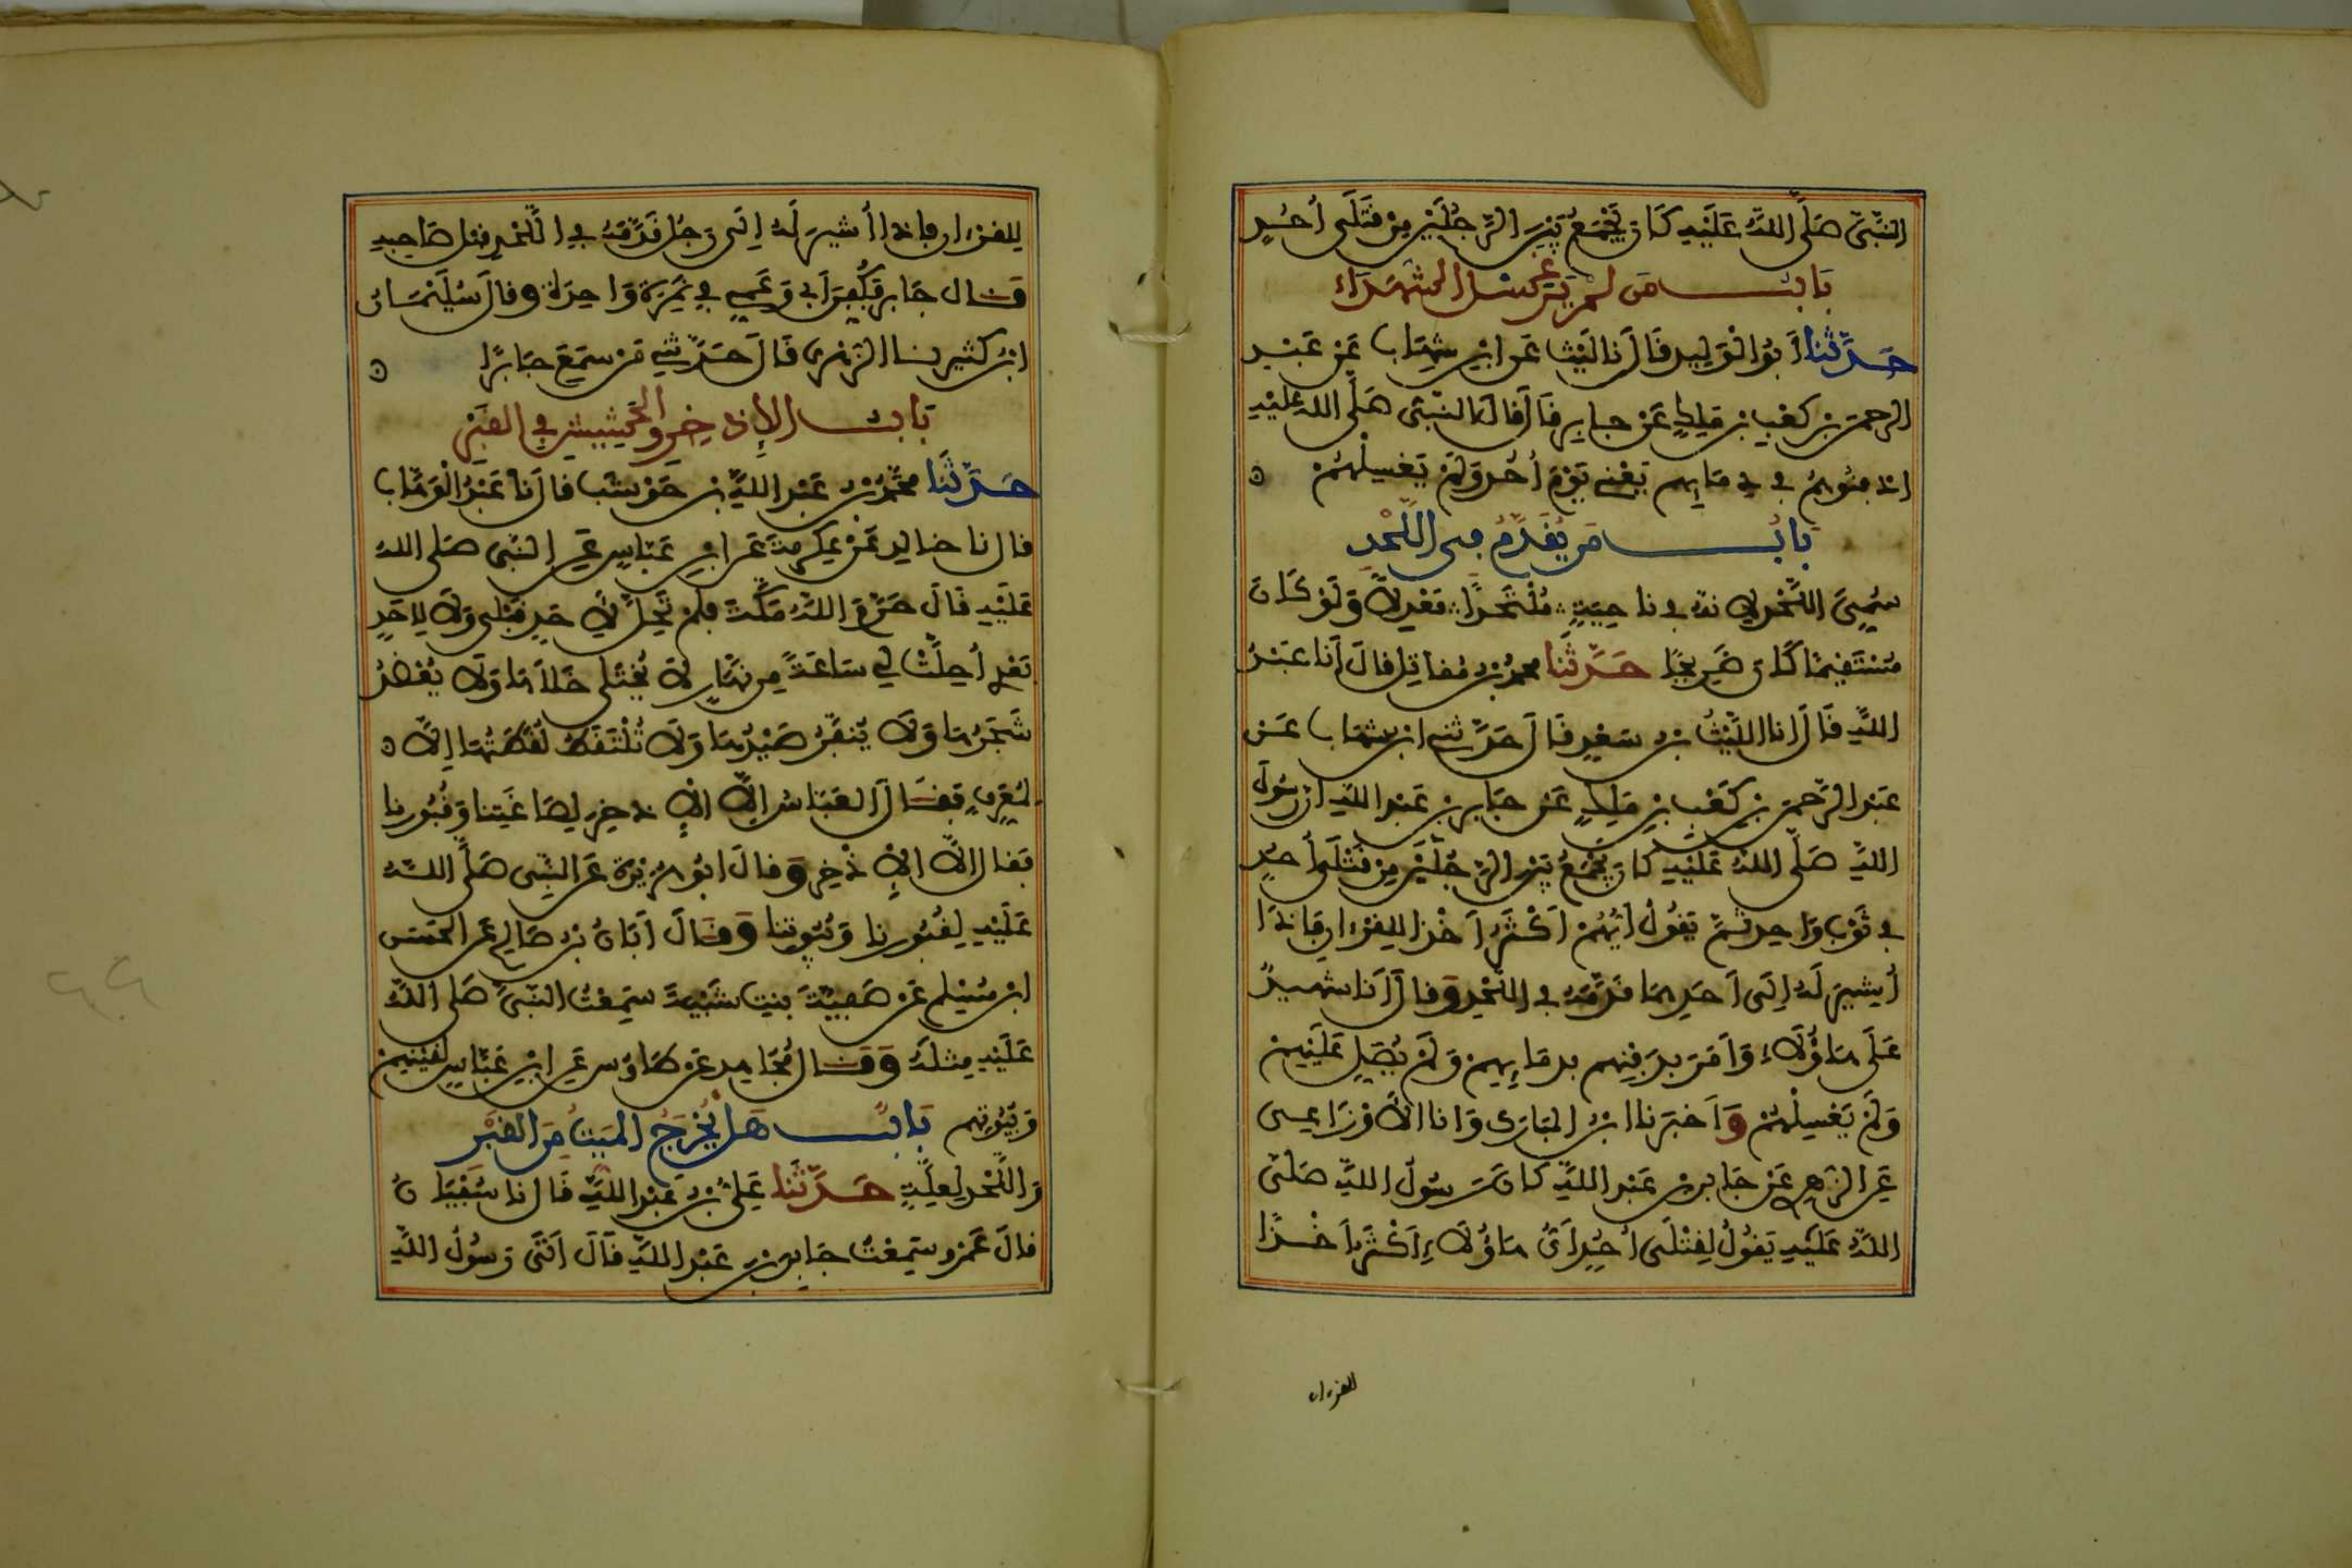 النَّبِيَّ صَلَّى اللهُ عَلَيْهِ كَانَ يَجْمَعُ بَيْنَ الرَّجُلَيْنِ مِنْ قَتْلَى أُحُدٍ
بَابُ مَن لم يَرَ غسل الشهَدَاءِ
حَدَّثنا أَبُو الْوَلِيدِ قَالَ نا لَيْث عَن ابْنِ شِهَاب عَنْ عَبْدِ
الرحمن بْنِ كَعْبِ بْنِ مَلِكٍ عَنْ جابِرٍ قَالَ قَالَ النَّبِي صَلَّى الله عَلَيْهِ
ادْفِنُوهُمْ في دِمَايِهِم يَعْنِي يَوْمَ أُحُدٍ وَلَمْ يَغْسِلْهُمْ ه
بَابُ مَن يُقَدَّمُ في اللَّحْدِ
سُمِّيَ اللَّحْدَ لِأَنهُ في ناحِيَةٍ مُلْتَحَدًا مَعْدِلاً وَلَوْ كَانَ
مُسْتَقِيمًا كَانَ ضَرِيحًا حَدَّثَنا محمدُ بْنُ مُقاتِلٍ قالَ أَنا عَبْدُ
اللهِ قَالَ انا اللَّيْثُ بْنُ سَعْدٍ قَالَ حَدَّثني ابن شهَاب عَنْ
عَبْدِ الرَّحمن بْنِ كَعْبِ بْنِ مَلِكٍ عَنْ جَابِرِ بْنِ عَبْدِ اللهِ أن رَسُولَ
اللهِ صَلَّى اللهُ عَلَيْهِ كانَ يَجْمَعُ بَيْنَ الرَّجُلَيْنِ مِنْ قَتْلَى أُحُدٍ
في ثَوْبٍ وَاحِدٍ ثُمَّ يَقُولُ أَيُّهُمْ أَكْثَرُ أَخْذًا لِلقُرْءَانِ فَإِذَا
أُشِيرَ لَهُ إِلَى أَحَدِهِمَا قَدَّمَهُ في اللَّحْدِ وَقالَ أَنا شهيدٌ
عَلَى هَاؤُلَاءِ وَأَمَرَ بِدَفْنِهِم بدمَايِهِمْ وَلَمْ يُصَلِّ عَلَيْهِمْ
وَلَمْ يَغْسِلْهُمْ وَأَخْبَرَنا ابْنُ المُبَارَكِ وَانا الأَوْزَاعِي
عَنِ الزهرِي عَنْ جَابِرِ بْنِ عَبْدِ اللهِ كَانَ رَسُولُ اللهِ صَلَّى
اللهُ عَلَيْهِ يَقُولُ لِقَتْلَى أُحُدٍ أَيُّ هَاؤُلَاءِ أَكْثَرُ أَخْذًا
للقرءان
لِلقرْءان فإذا أُشيرَ لَهُ إِلَى رَجُلٍ قَدَّمَهُ في اللَّحْدِ قبل صَاحِبِهِ
قَالَ جَابِر فَكُفِّنَ أَبِي وَعَمِّي فِي نَمِرَةٍ وَاحِدَةٍ وقالَ سُلَيْمَانُ
ابْنُ كثيرٍ نا الزهْرِي قَالَ حَدَّثَنِي مَنْ سَمِعَ جَابِرًا ه
بَابُ الإِذْخِرِ والْحَشِيشِ فِي القَبْرِ
حَدَّثَنَا مُحَمَّدُ بْنُ عَبْدِ اللهِ بْنِ حَوْشَبٍ قَالَ نَا عَبْدُ الْوَهَّابِ
قال نا خالِد عَنْ عِكْرِمَةَ عَن ابْنِ عَبَّاسٍ عَنِ النَّبِي صَلى اللهُ
عَلَيْهِ قَالَ حَرَّمَ اللهُ مَكَّةَ فَلَمْ تَحِلَّ لِأَحَدٍ قَبْلِي وَلَا لِأَحَدٍ
بَعْدِي أُحِلَّتْ لِي سَاعَةً مِن نَهَارٍ لَا يُخْتَلَى خَلَاهَا وَلَا يُعْضَدُ
شَجَرُهَا وَلَا يُنَفَّرُ صَيْدُهَا وَلَا تُلْتَقَطُ لُقَطَتُهَا إِلَّا ه
لِمُعَرِّفٍ فَقَالَ العَبَّاسُ إِلَّا الإِذْخِرَ لِصَاغَتِنا وَقُبُورِنا
فَقال إِلَّا الإِذْخِرَ وَقالَ أبُو هُرَيْرَةَ عَن النَّبِي صَلَّى اللهُ
عَلَيْهِ لِقُبُورِنا وَبُيُوتِنا وَقَالَ أَبَانُ بْنُ صَالِحٍ عَن الحَسَنِ
ابْنِ مُسْلِمٍ عَنْ صَفِيَّةَ بِنتِ شَيْبَةَ سَمِعْتُ النَّبِيَّ صَلى اللهُ
عَلَيْهِ مِثْلَهُ وَقَالَ مُجَاهِد عَنْ طَاوُس عَنِ ابْنِ عَبَّاسٍ لِقَيْنِهِمْ
وَبُيُوتِهِم بَابُ هَلْ يُخْرَجُ المَيِّتُ مِنَ القَبْرِ
وَاللَّحْدِ لِعِلَّةٍ حَدَّثَنا عَلِيُّ بْنُ عَبْدِ اللهِ قَالَ نا سُفْيَانُ
قالَ عَمْرو سَمِعْتُ جَابِرَ بْنَ عَبْدِ اللهِ قَالَ أَتَى رَسُولُ اللهِ